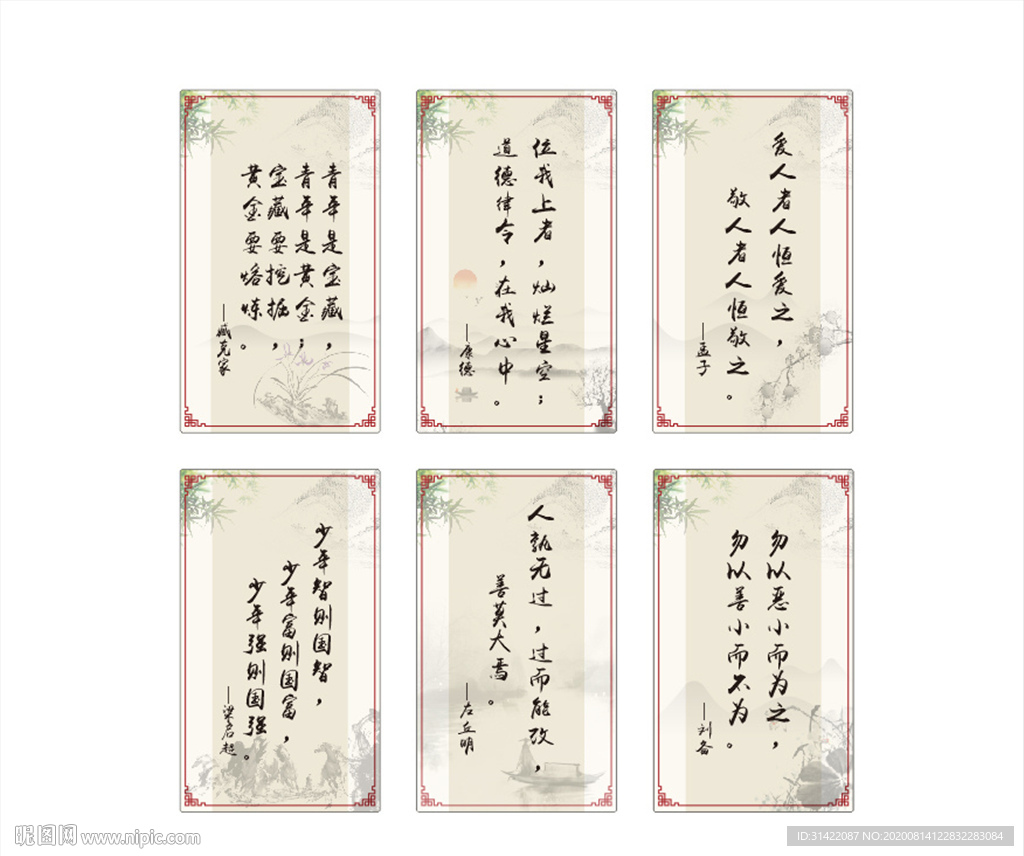 青年是宝藏，
青年是黄金；
宝藏要挖掘，
黄金要熔炼。
——臧克家
位我上者，灿烂星空；
道德律令，在我心中。
——康德
爱人者人恒爱之，
敬人者人恒敬之。
——孟子
少年智则国智，
少年富则国富，
少年强则国强。
——梁启超
人孰无过，过而能改，
善莫大焉。
——左丘明
勿以恶小而为之，
勿以善小而不为。
——刘备
昵图网 www.nipic.com
ID:31422087 NO:20200814122832283084